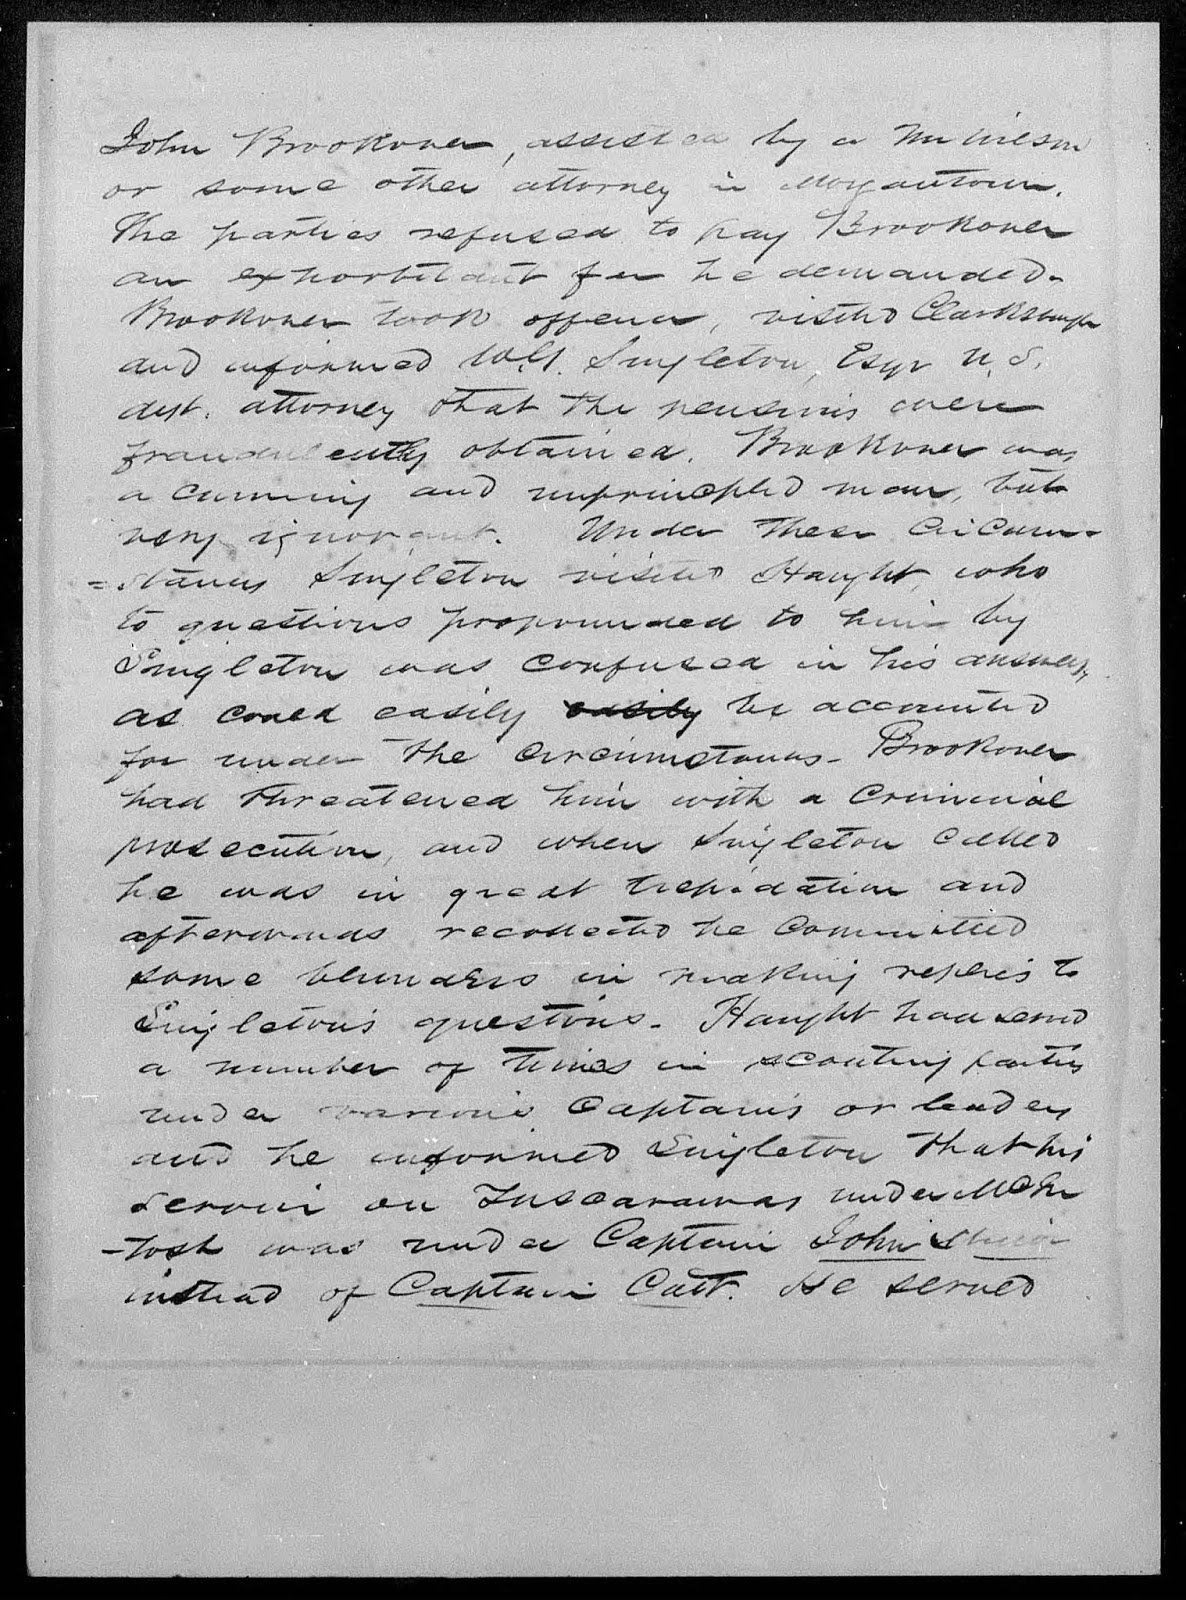 John Brookover, assisted by a Mr Wilson
or some other attorney in Morgantown.
The parties refused to pay Brookover
an exhorbitant fee he demanded.
Brookover took offence, visited Clarksburgh
and informed W.G. Singleton, Esqr U.S.
dist. attorney that the pensions were
fraudulently obtained. Brookover was
a cunning and unprincipled man, but
very ignorant. Under these circum-
=stances Singleton visited Haught, who
to questions propounded to him by
Singleton was confused in his answers,
as could easily easily be accounted
for under the circumstances. Brookover
had threatened him with a criminal
prosecution, and when Singleton called
he was in great trepidation and
afterwards recollected he committed
some blunders in making replies to
Singleton's questions. Haught had served
a number of times in scouting parties
under various Captains or leaders
and he informed Singleton that his
service on Tuscarawas under McIn
-tosh was under Captain John
instead of Captain Catt. He served